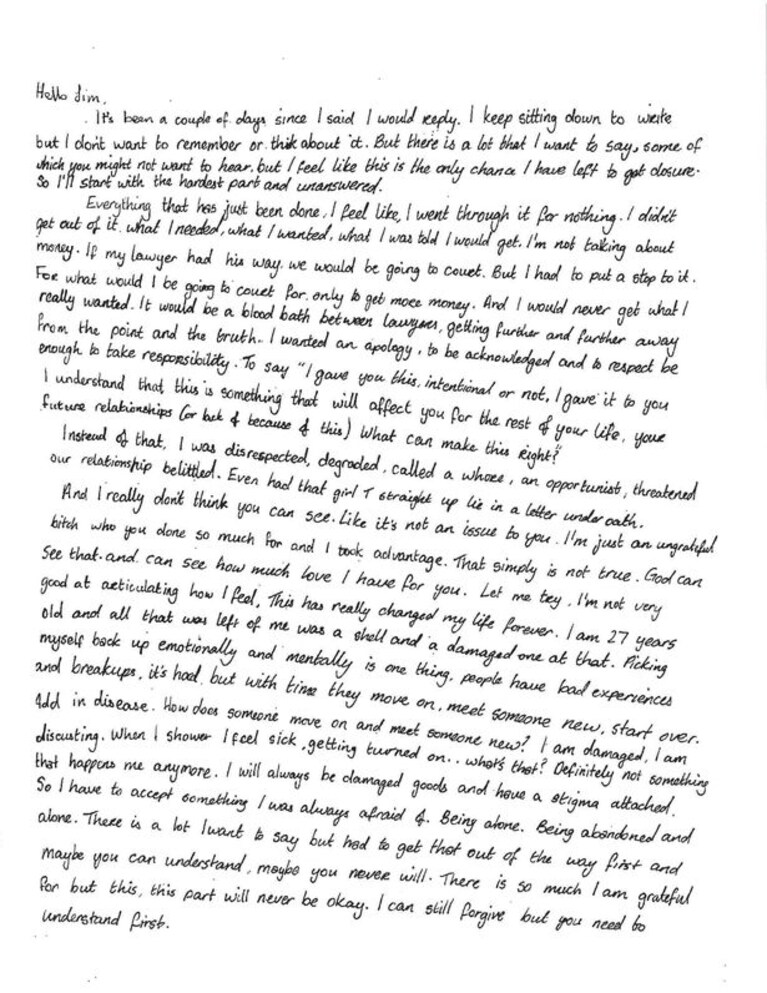 Hello Jim,
It's been a couple of days since I said I would reply. I keep sitting down to write
but I don't want to remember or thik about it. But there is a lot that I want to say, some of
which you might not want to hear, but I feel like this is the only chance I have left to get closure.
So I'll start with the hardest part and unanswered.
Everything that has just been done, I feel like, I went through it for nothing. I didn't
get out of it what I needed, what I wanted, what I was told I would get. I'm not talking about
money. If my lawyer had his way, we would be going to court. But I had to put a stop to it.
For what would I be going to court for, only to get more money. And I would never get what I
really wanted. It would be a blood bath between lawyers, getting further and further away
from the point and the truth. I wanted an apology, to be acknowledged and to respect be
enough to take responsibility. To say "I gave you this, intentional or not, I gave it to you
I understand that this is something that will affect you for the rest of your life, your
future relationships (or lack of because of this) What can make this right?"
Instead of that, I was disrespected, degraded, called a whore, an opportunist, threatened
our relationship belittled. Even had that girl T straight up lie in a letter under oath.
And I really don't think you can see. Like it's not an issue to you. I'm just an ungrateful
bitch who you done so much for and I took advantage. That simply is not true. God can
see that. and can see how much love I have for you. Let me try, I'm not very
good at articulating how I feel, This has really changed my life forever. I am 27 years
old and all that was left of me was a shell and a damaged one at that. Picking
myself back up emotionally and mentally is one thing, people have bad experiences
and breakups, it's had, but with time they move on, meet someone new, start over.
Add in disease. How does someone move on and meet someone new? I am damaged, I am
discusting. When I shower I feel sick, getting turned on.. what's that? Definitely not something
that happens me anymore. I will always be damaged goods and have a stigma attached.
So I have to accept something I was always afraid of. Being alone. Being abandoned and
alone. There is a lot I want to say but had to get that out of the way first and
maybe you can understand, maybe you never will. There is so much I am grateful
for but this, this part will never be okay. I can still forgive but you need to
understand first.